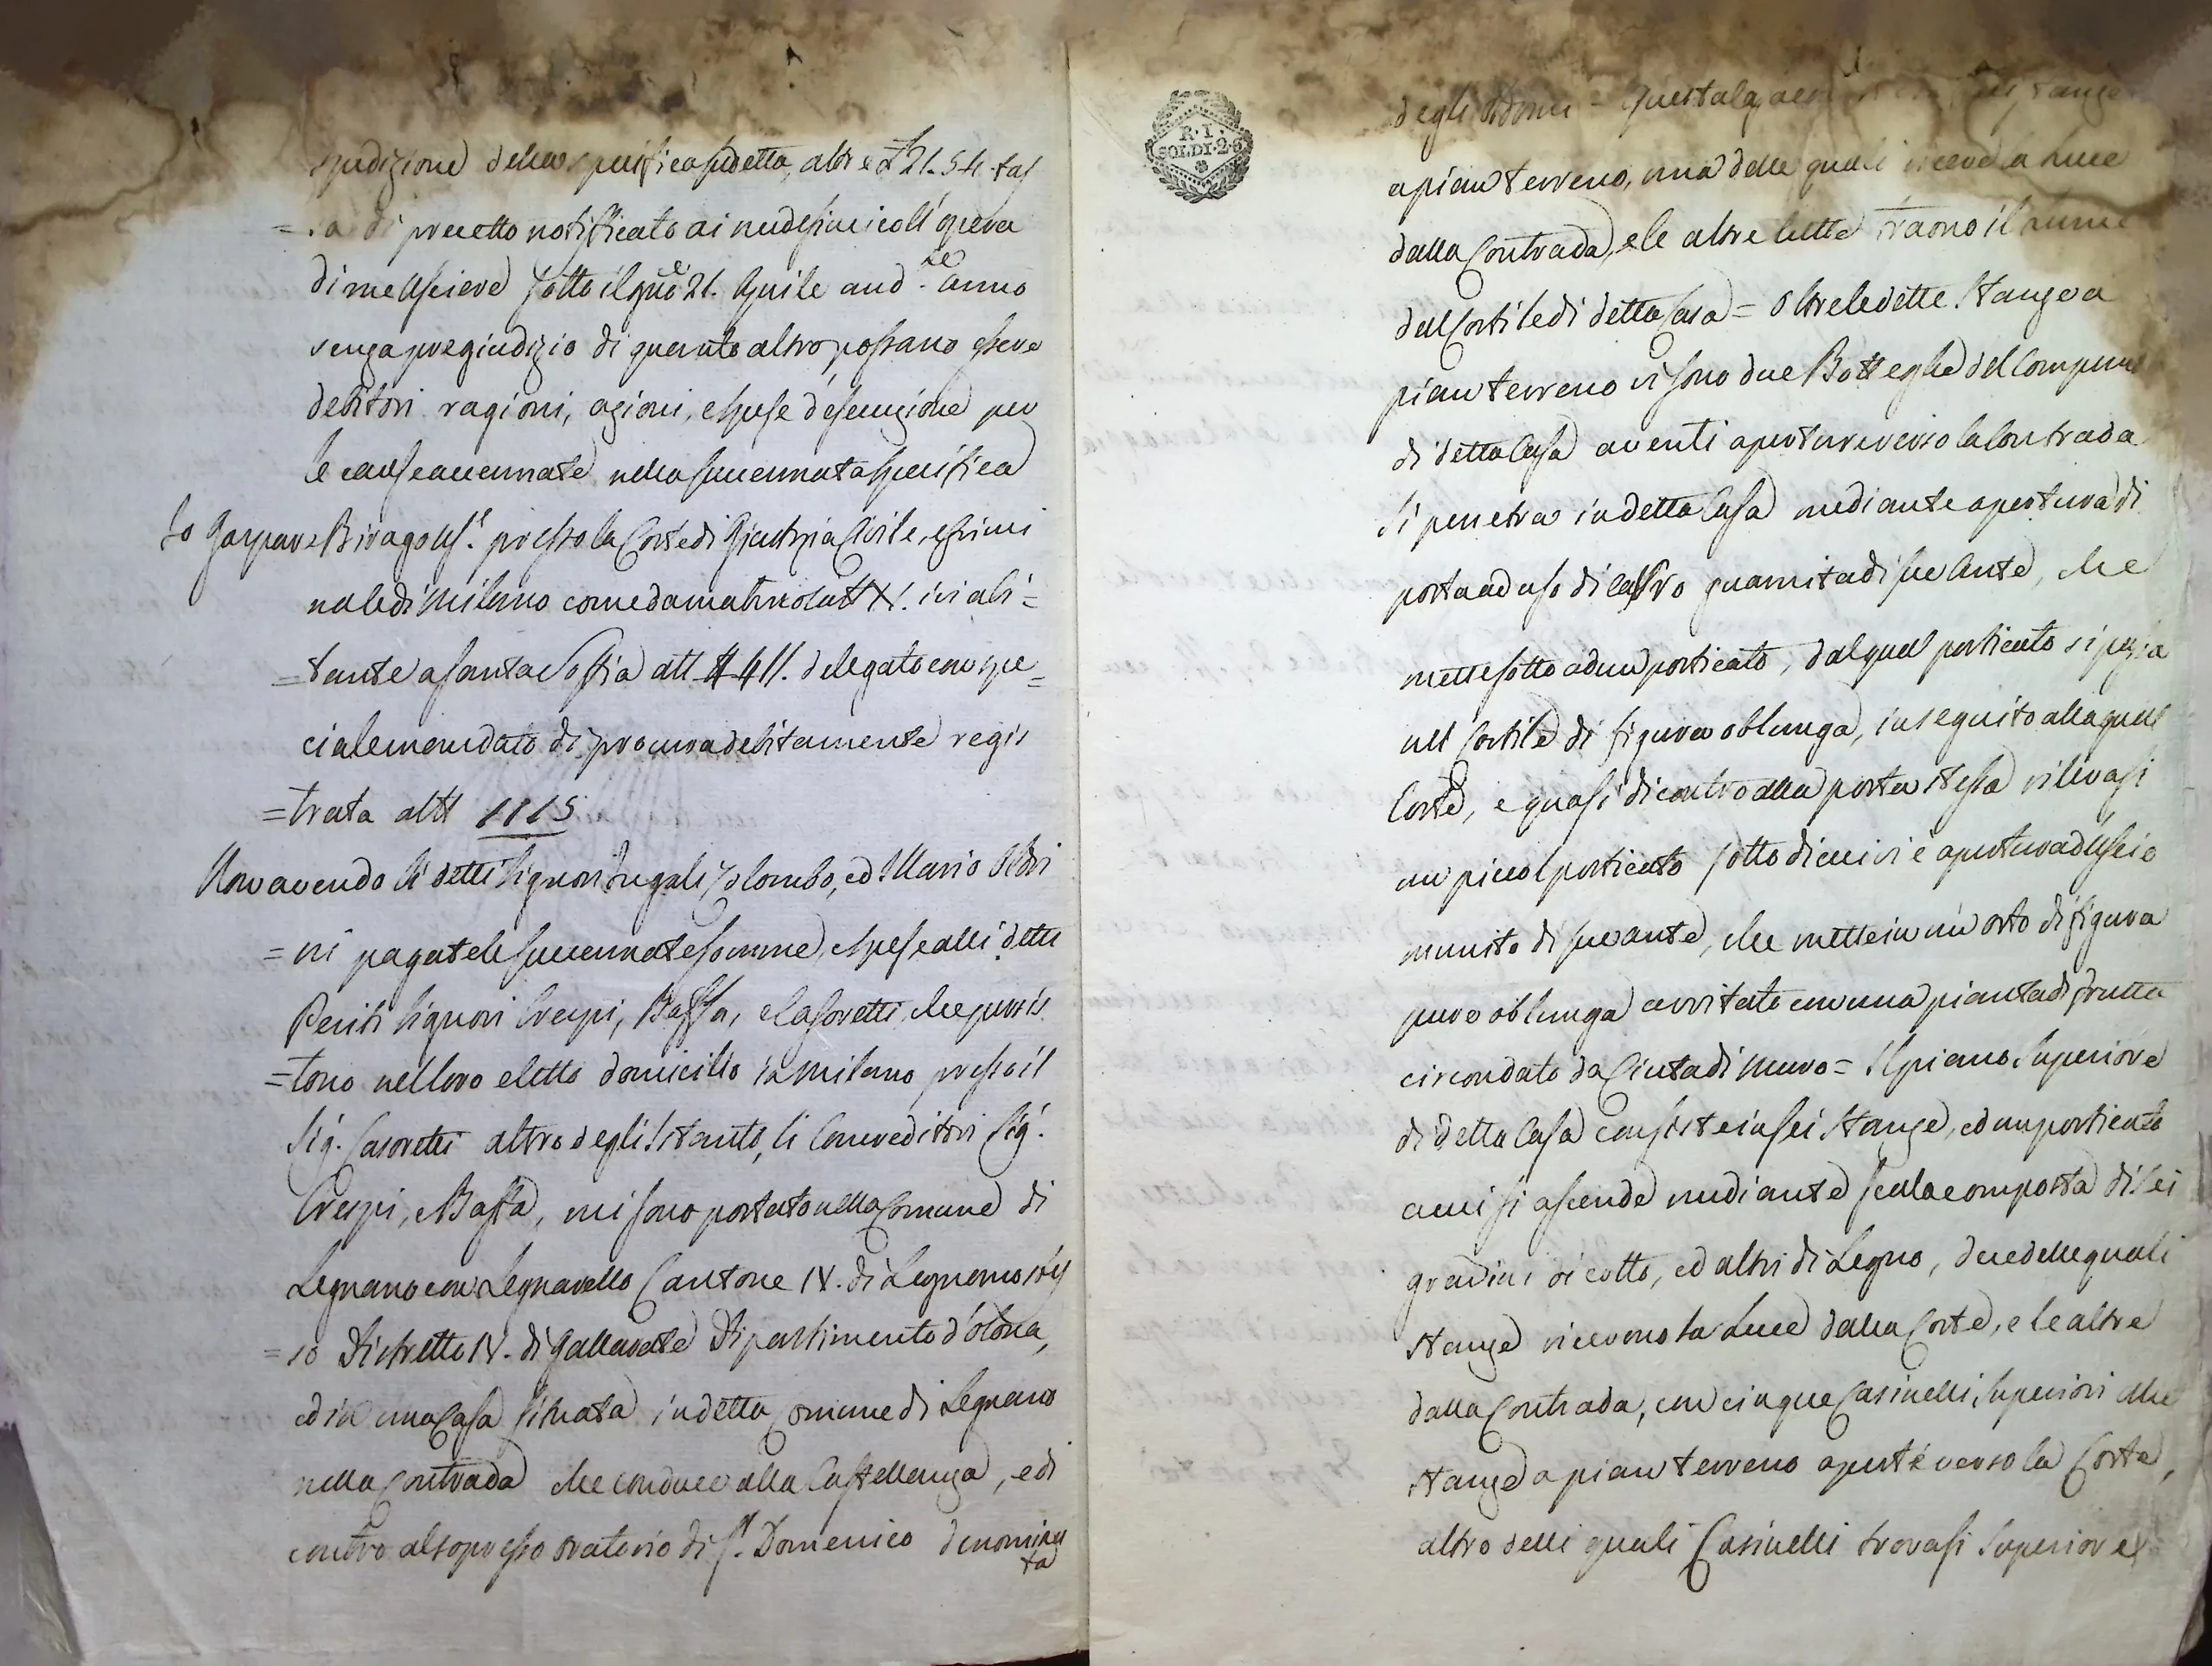 spedizione della specifica sudetta, altre £ 21.54. tas
=sa di precetto notificato ai medesimi coll'opera
di me Usciere sotto il gno 21. Aprile and.te anno
senza pregiudizio di quanto altro possano essere
debitori ragioni, azioni, e spese d'esecuzione per
le cause accennate nella succennata specifica
Io Gaspare Birago Us.e presso la Corte di Giustizia Civile, e Crimi
nale di Milano come da matricola XI. ivi abi=
=tante a Santa Sofia al 411. delegato con spe=
ciale mandato di procura debitamente regis
=trata al 1115
Non avendo li detti Signori Jugali Colombo, ed Maria Oldri
=ni pagate le succennate somme, e spese alli detti
Periti Signori Crespi, Baffa, e Casoretti che persis
=tono nel loro eletto domicilio in Milano presso il
Sig. Casoretti altro degli Istanti, li Concreditori Sig.
Crespi, e Baffa, mi sono portato nella Comune di
Legnano con Legnarello Cantone IV. di Legnano
Distretto IV. di Gallarate Dipartimento d'Olona,
ed in una Casa situata in detta Comune di Legnano
nella Contrada che conduce alla Castellanza, e di
contro al soppresso oratorio di S. Domenico denomina
ta
R.I.
SOLDI.2.6
degli
a pian terreno, una delle quali riceve la luce
dalla Contrada, e le altre tutte traono il lume
dal Cortile di detta Casa = Oltre le dette Stanze a
pian terreno vi sono due Botteghe del
di detta Casa aventi aperture verso la Contrada
Si penetra in detta Casa mediante apertura di
porta ad uso di carro guarnita di sue ante, che
mette sotto ad un porticato, dal qual porticato si passa
nel Cortile di figura oblunga, in seguito alla qual
Corte, e quasi di contro alla porta stessa rilevasi
un piccol porticato sotto di cui vi è apertura d'uscio
munito di sue ante, che mette in un orto di figura
pure oblunga avvitato con una pianta di frutta
circondato da Cinta di Muro = Il piano Superiore
di detta Casa consiste in sei Stanze, ed un porticato
a cui si ascende mediante scala composta di sei
gradini di cotto, ed altri di Legno, due delle quali
Stanze ricevono la Luce dalla Corte, e le altre
dalla Contrada, con cinque Casinelli Superiori alle
Stanze a pian terreno aperte verso la Corte,
altro delli quali Casinelli trovasi Superiore